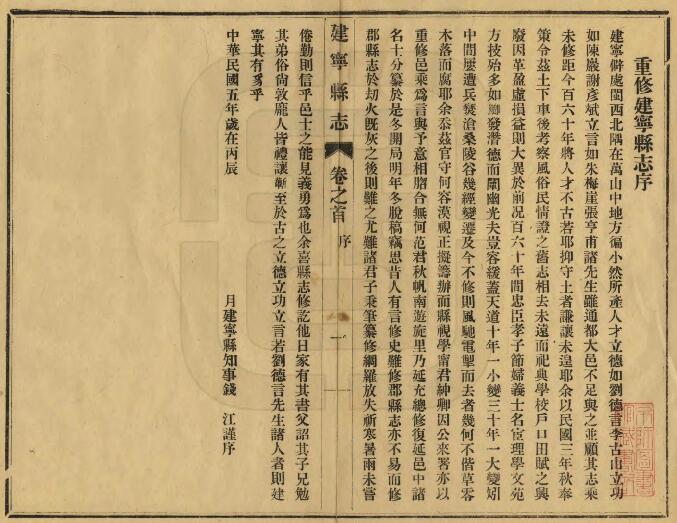 重修建寧縣志序
建寧僻處閩西北隅在萬山中地方徧小然所產人才立德如劉德言李古山立功
如陳巖謝彥斌立言如朱梅崖張亨甫諸先生雖通都大邑不足與之並顧其志乘
未修距今百六十年將人才不古若耶抑守土者謙讓未遑耶余以民國三年秋奉
策令茲土下車後考察風俗民情證之舊志相去未遠而祀典學校戶口田賦之興
廢因革盈虛損益則大異於前况百六十年間忠臣孝子節婦義士名宦理學文苑
方技殆多如鄉發潛德而闡幽光夫豈容緩蓋天道十年一小變三十年一大變矧
中間屢遭兵燹滄桑陵谷幾經變遷及今不修則風馳電掣而去者幾何不偕草零
木落而腐耶余忝茲官守何容漠視正擬籌辦而縣視學甯君紳卿因公來署亦以
重修邑乘爲言與予意相脗合無何范君秋帆南遊旋里乃延充總修復延邑中諸
名士分纂於是冬開局明年冬脫稿竊思昔人有言修史難修郡縣志亦不易而修
郡縣志於刧火旣灰之後則難之尤難諸君子秉筆纂修網羅放失祈寒暑雨未嘗
建寧縣志
卷之首
序
一
倦勤則信乎邑士之能見義勇爲也余喜縣志修訖他日家有其書父詔其子兄勉
其弟俗尙敦龐人皆禮讓蘄至於古之立德立功立言若劉德言先生諸人者則建
寧其有豸乎
中華民國五年歲在丙辰
月建寧縣知事錢
江謹序